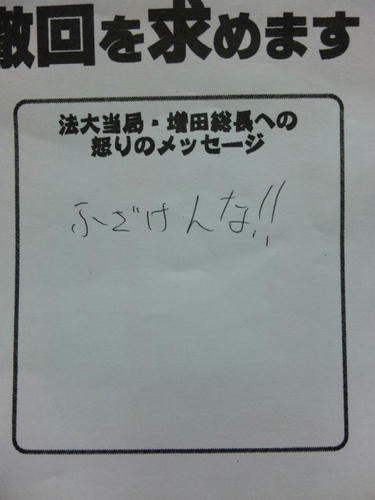 撤回を求めます
法大当局・増田総長への
怒りのメッセージ
ふざけんな!!